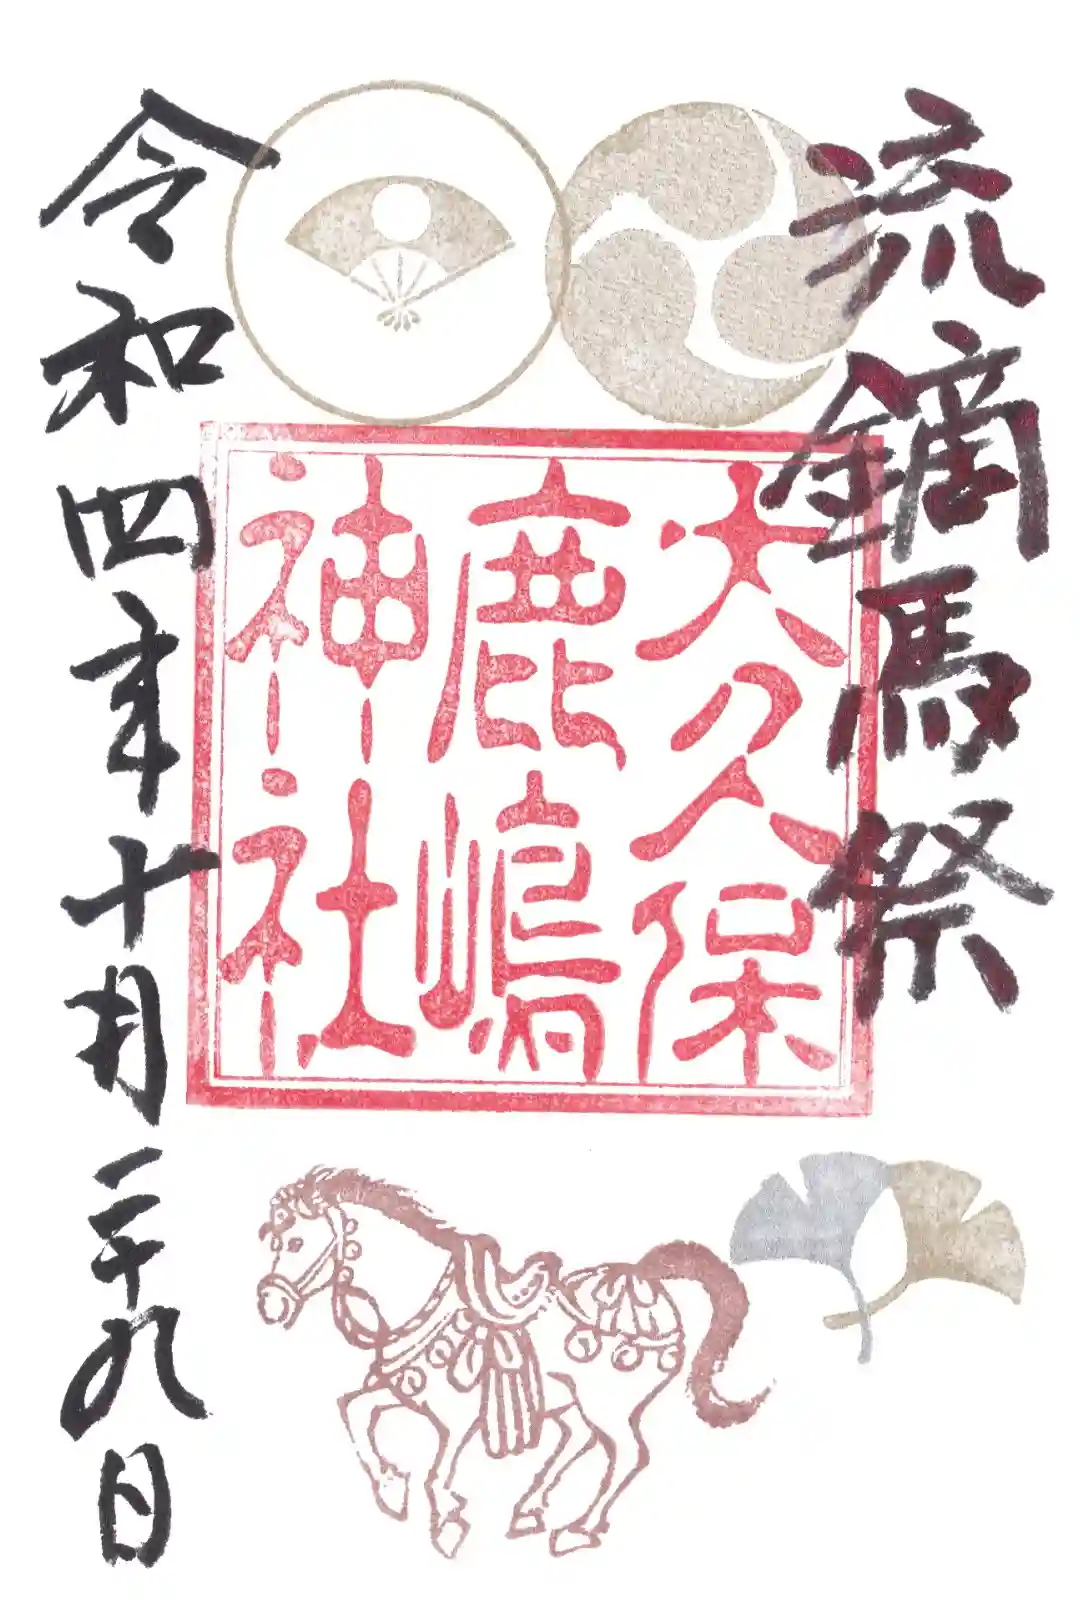 流鏑馬祭
大久保
鹿嶋
神社
令和四年十月二十九日